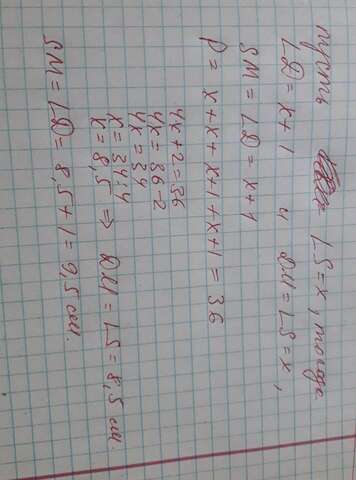 Пусть LS=x, тогда
LD=x+1 и DM=LS=x,
SM=LD=x+1
P= x+x+x+1+x+1=36
4x+2=36
4x=36-2
4x=34
x=34:4
x=8,5 ⇒ DM=LS=8,5 см.
SM=LD=8,5+1=9,5 см.